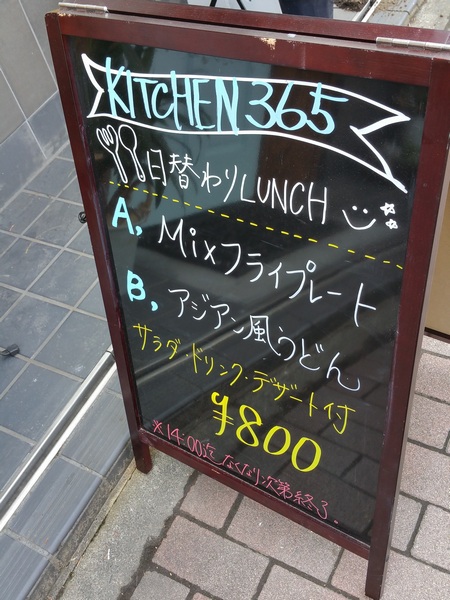 KITCHEN 365
日替わりLUNCH
A, Mixフライプレート
B, アジアン風うどん
サラダ・ドリンク・デザート付
¥800
※14:00迄 なくなり次第終了.